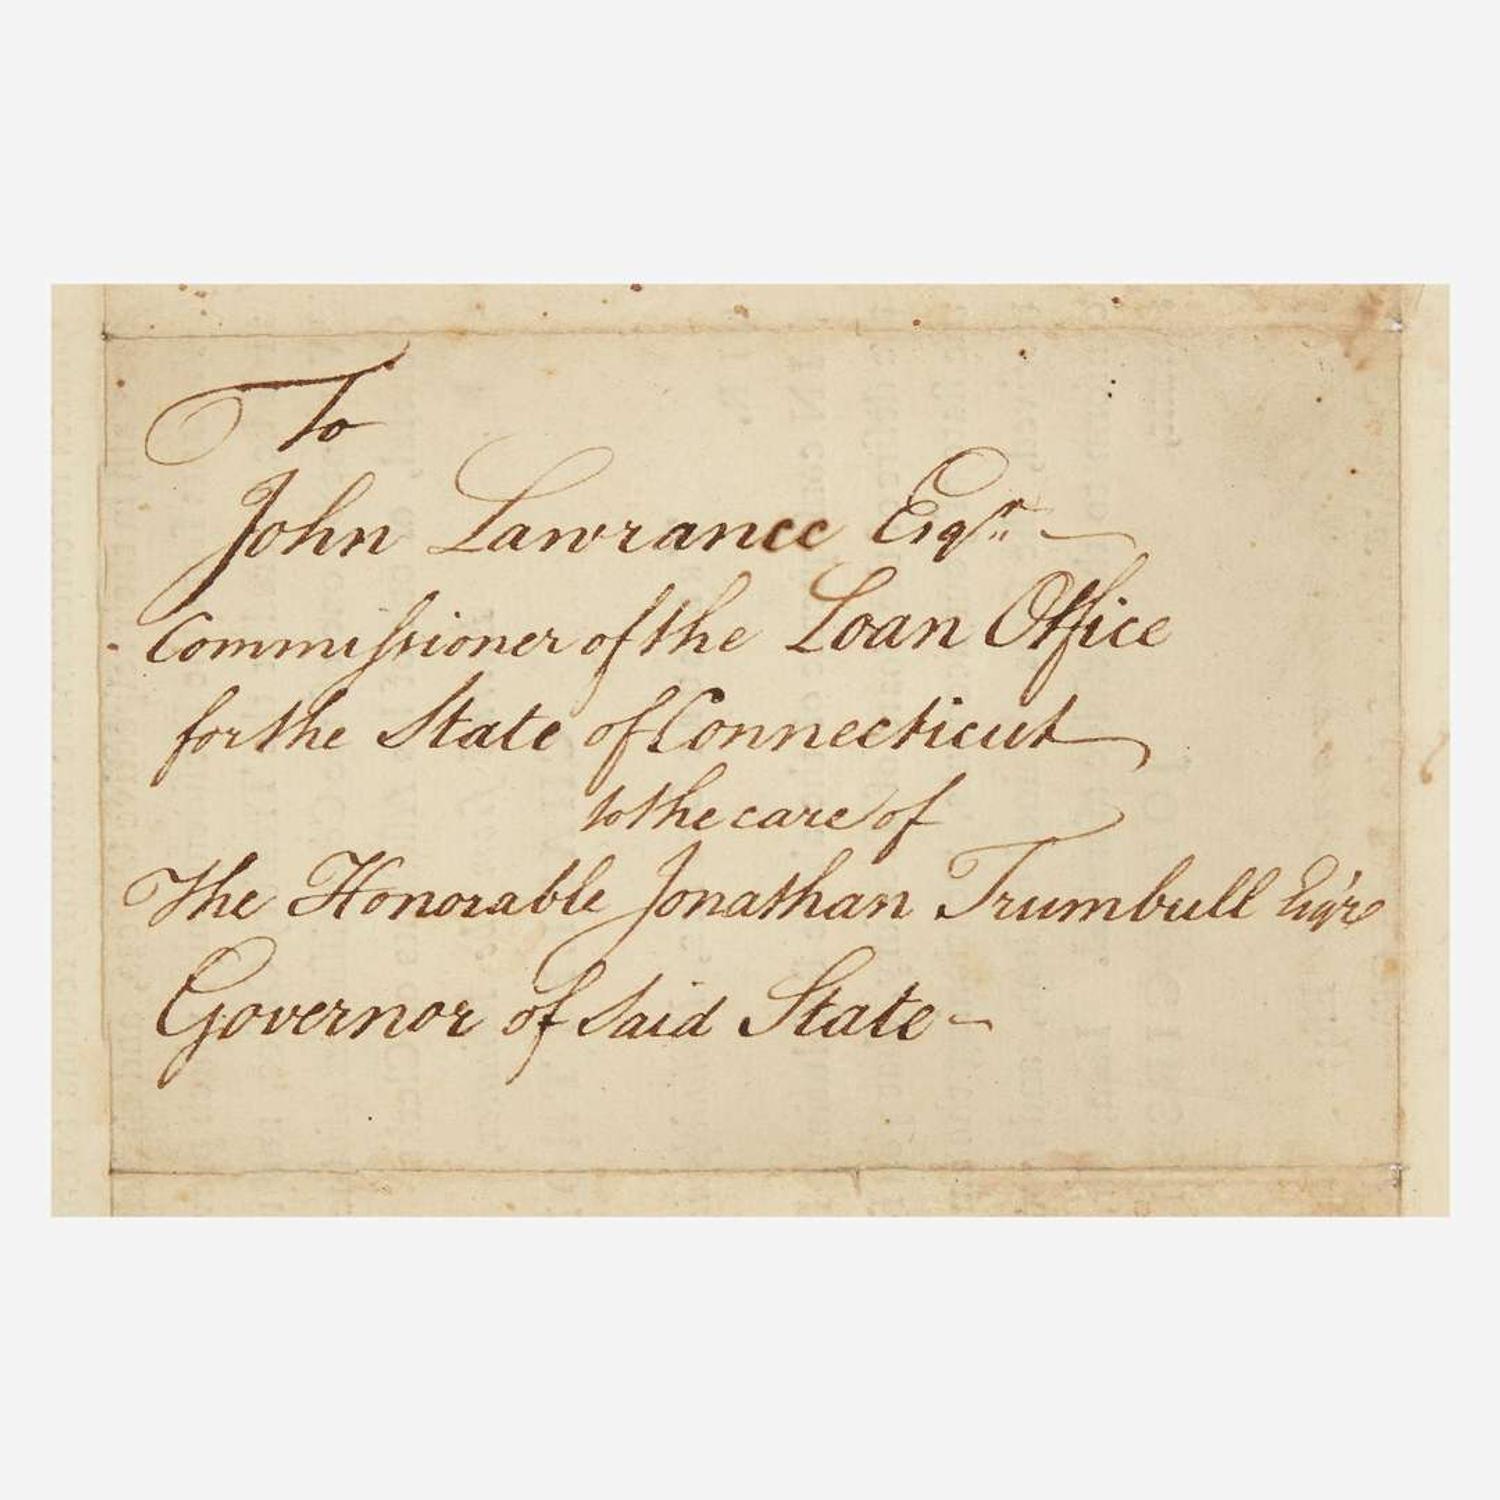 To
John Lawrance Esqr. —
Commissioner of the Loan Office
for the State of Connecticut
to the care of
The Honorable Jonathan Trumbull Esqre
Governor of said State —